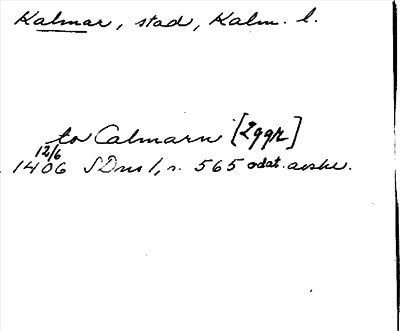 Kalmar, stad, Kalm. l.
to Calmarn [2ggr]
12/6
1406 SDns 1, s. 565 odat. avskr.